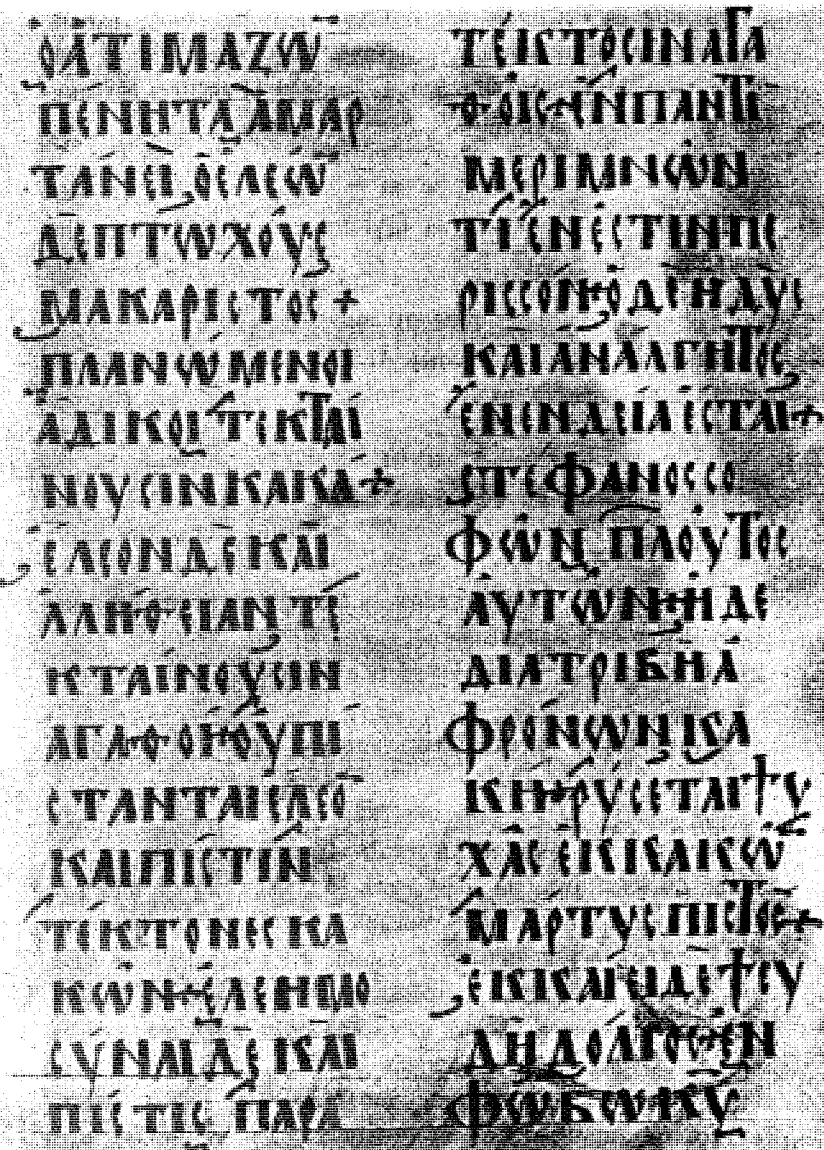 ΟΑΤΙΜΑΖΩ̅
ΠΕΝΗΤΑ ΑΜΑΡ
ΤΑΝΕΙ ΟΕΛΕΩ̅
ΔΕΠΤΩΧΟΥϹ
ΜΑΚΑΡΙϹΤΟϹ +
ΠΛΑΝΩΜΕΝΟΙ
ΑΔΙΚΟΙ ΤΕΚΤΑΙ
ΝΟΥϹΙΝ ΚΑΚΑ +
ΕΛΕΟΝ ΔΕ ΚΑΙ
ΑΛΗΘΕΙΑΝ ΤΕ
ΚΤΑΙΝΟΥϹΙΝ
ΑΓΑΘΟΙ+ΟΥΠΙ
ϹΤΑΝΤΑΙ ΕΛΕΟ̅
ΚΑΙ ΠΙϹΤΙΝ
ΤΕΚΤΟΝΕϹ ΚΑ
ΚΩΝ+ΕΛΕΗΜΟ
ϹΥΝΑΙ ΔΕ ΚΑΙ
ΠΙϹΤΙϹ ΠΑΡΑ
ΤΕΚΤΟϹΙΝ ΑΓΑ
ΘΟΙϹ+ΕΝ ΠΑΝΤΙ
ΜΕΡΙΜΝΩΝ
ΤΙ ΕΝΕϹΤΙΝ ΠΕ
ΡΙϹϹΟΝ+Ο ΔΕ ΗΔΥϹ
ΚΑΙ ΑΝΑΛΓΗΤΟϹ
ΕΝ ΕΝΔΕΙΑ ΕϹΤΑΙ+
ϹΤΕΦΑΝΟϹ ϹΟ
ΦΩΝ ΠΛΟΥΤΟϹ
ΑΥΤΩΝ+Η ΔΕ
ΔΙΑΤΡΙΒΗ Α
ΦΡΟΝΩΝ ΚΑ
ΚΗ+ΡΥϹΕΤΑΙ ΨΥ
ΧΑϹ ΕΚ ΚΑΚΩ̅
ΜΑΡΤΥϹ ΠΙϹΤΟϹ+
ΕΚΚΑΙΕΙ ΔΕ ΨΕΥ
ΔΗ ΔΟΛΙΟϹ+ΕΝ
ΦΩΒΩ ΚΥ̅